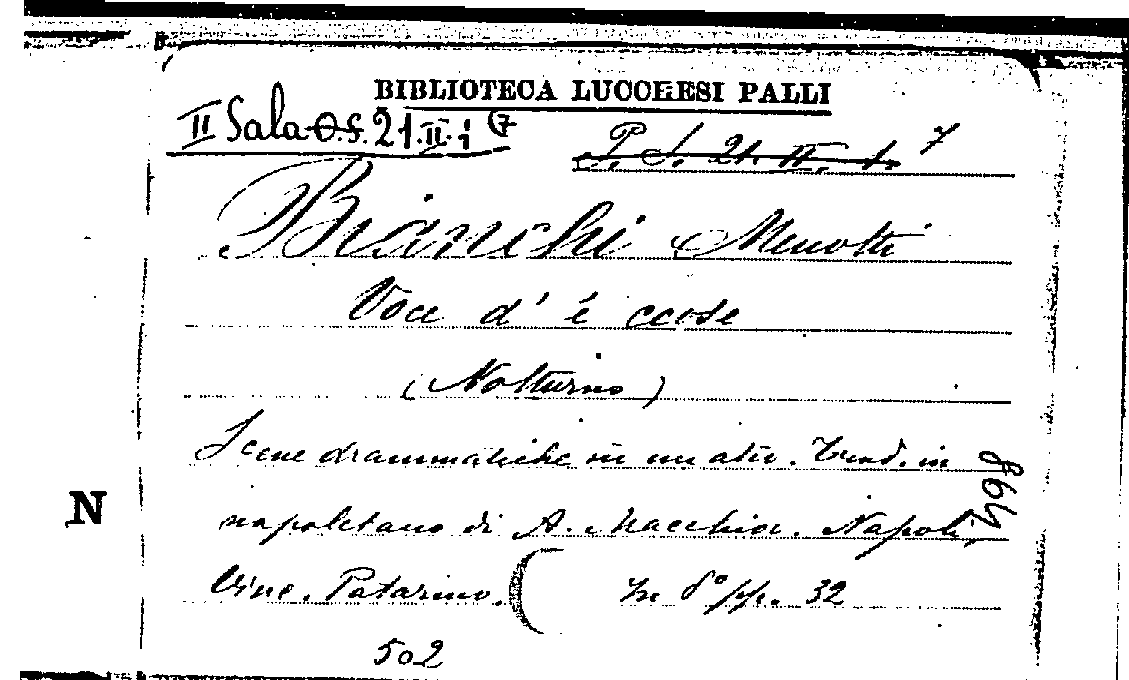 BIBLIOTECA LUCCHESI PALLI
II Sala O.S. 21.II.1 (7
P. S. 21. II. 1. 7
Bianchi Menotti
Voce d' é ccose
(Notturno)
Scene drammatiche in un atto. Trad. in
napoletano di A. Macchia. Napoli,
1898
N
Vinc. Patarino. ( In 8° pp. 32
502